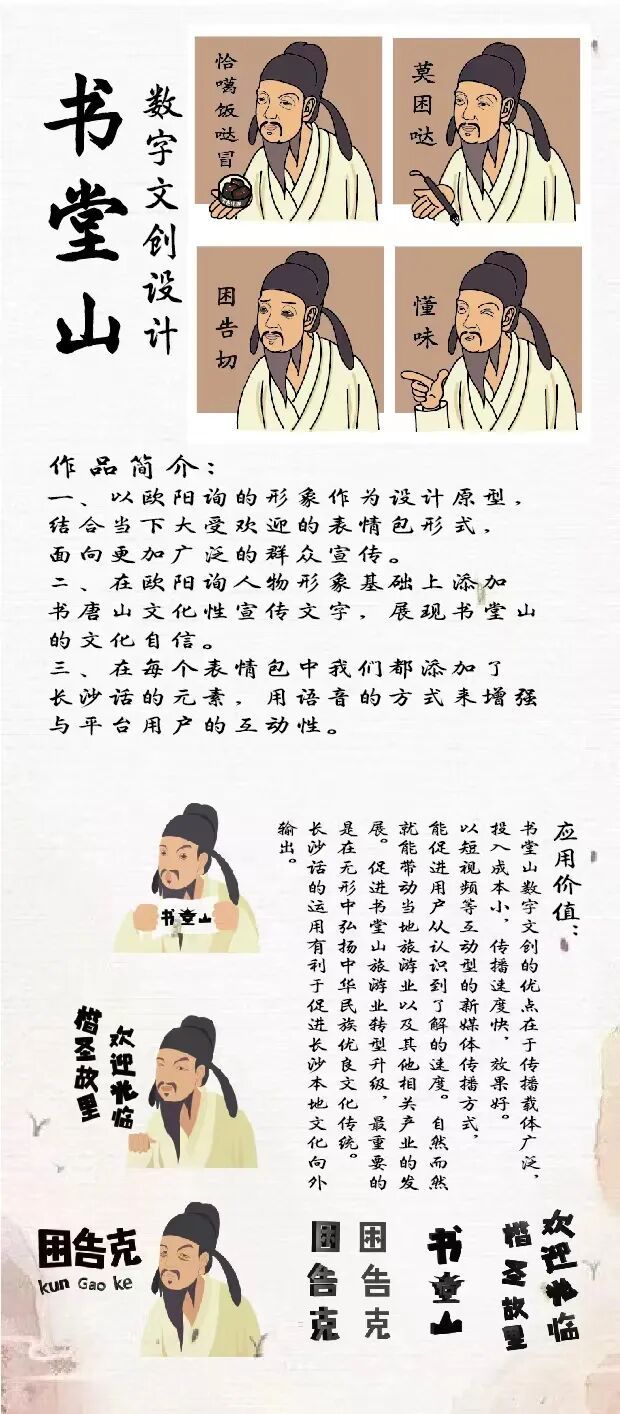 书堂山
数字文创设计
恰噶饭哒冒
莫困哒
困告切
懂味
作品简介：
一、以欧阳询的形象作为设计原型，
结合当下大受欢迎的表情包形式，
面向更加广泛的群众宣传。
二、在欧阳询人物形象基础上添加
书唐山文化性宣传文字，展现书堂山
的文化自信。
三、在每个表情包中我们都添加了
长沙话的元素，用语音的方式来增强
与平台用户的互动性。
应用价值：
书堂山数字文创的优点在于传播载体广泛，
投入成本小，传播速度快，效果好。
以短视频等互动型的新媒体传播方式，
能促进用户从认识到了解的速度。自然而然
就能带动当地旅游业以及其他相关产业的发
展。促进书堂山旅游业转型升级，最重要的
是在无形中弘扬中华民族优良文化传统。
长沙话的运用有利于促进长沙本地文化向外
输出。
书堂山
欢迎光临
楷圣故里
困告克
kun Gao ke
困告克
困告克
书堂山
欢迎光临
楷圣故里